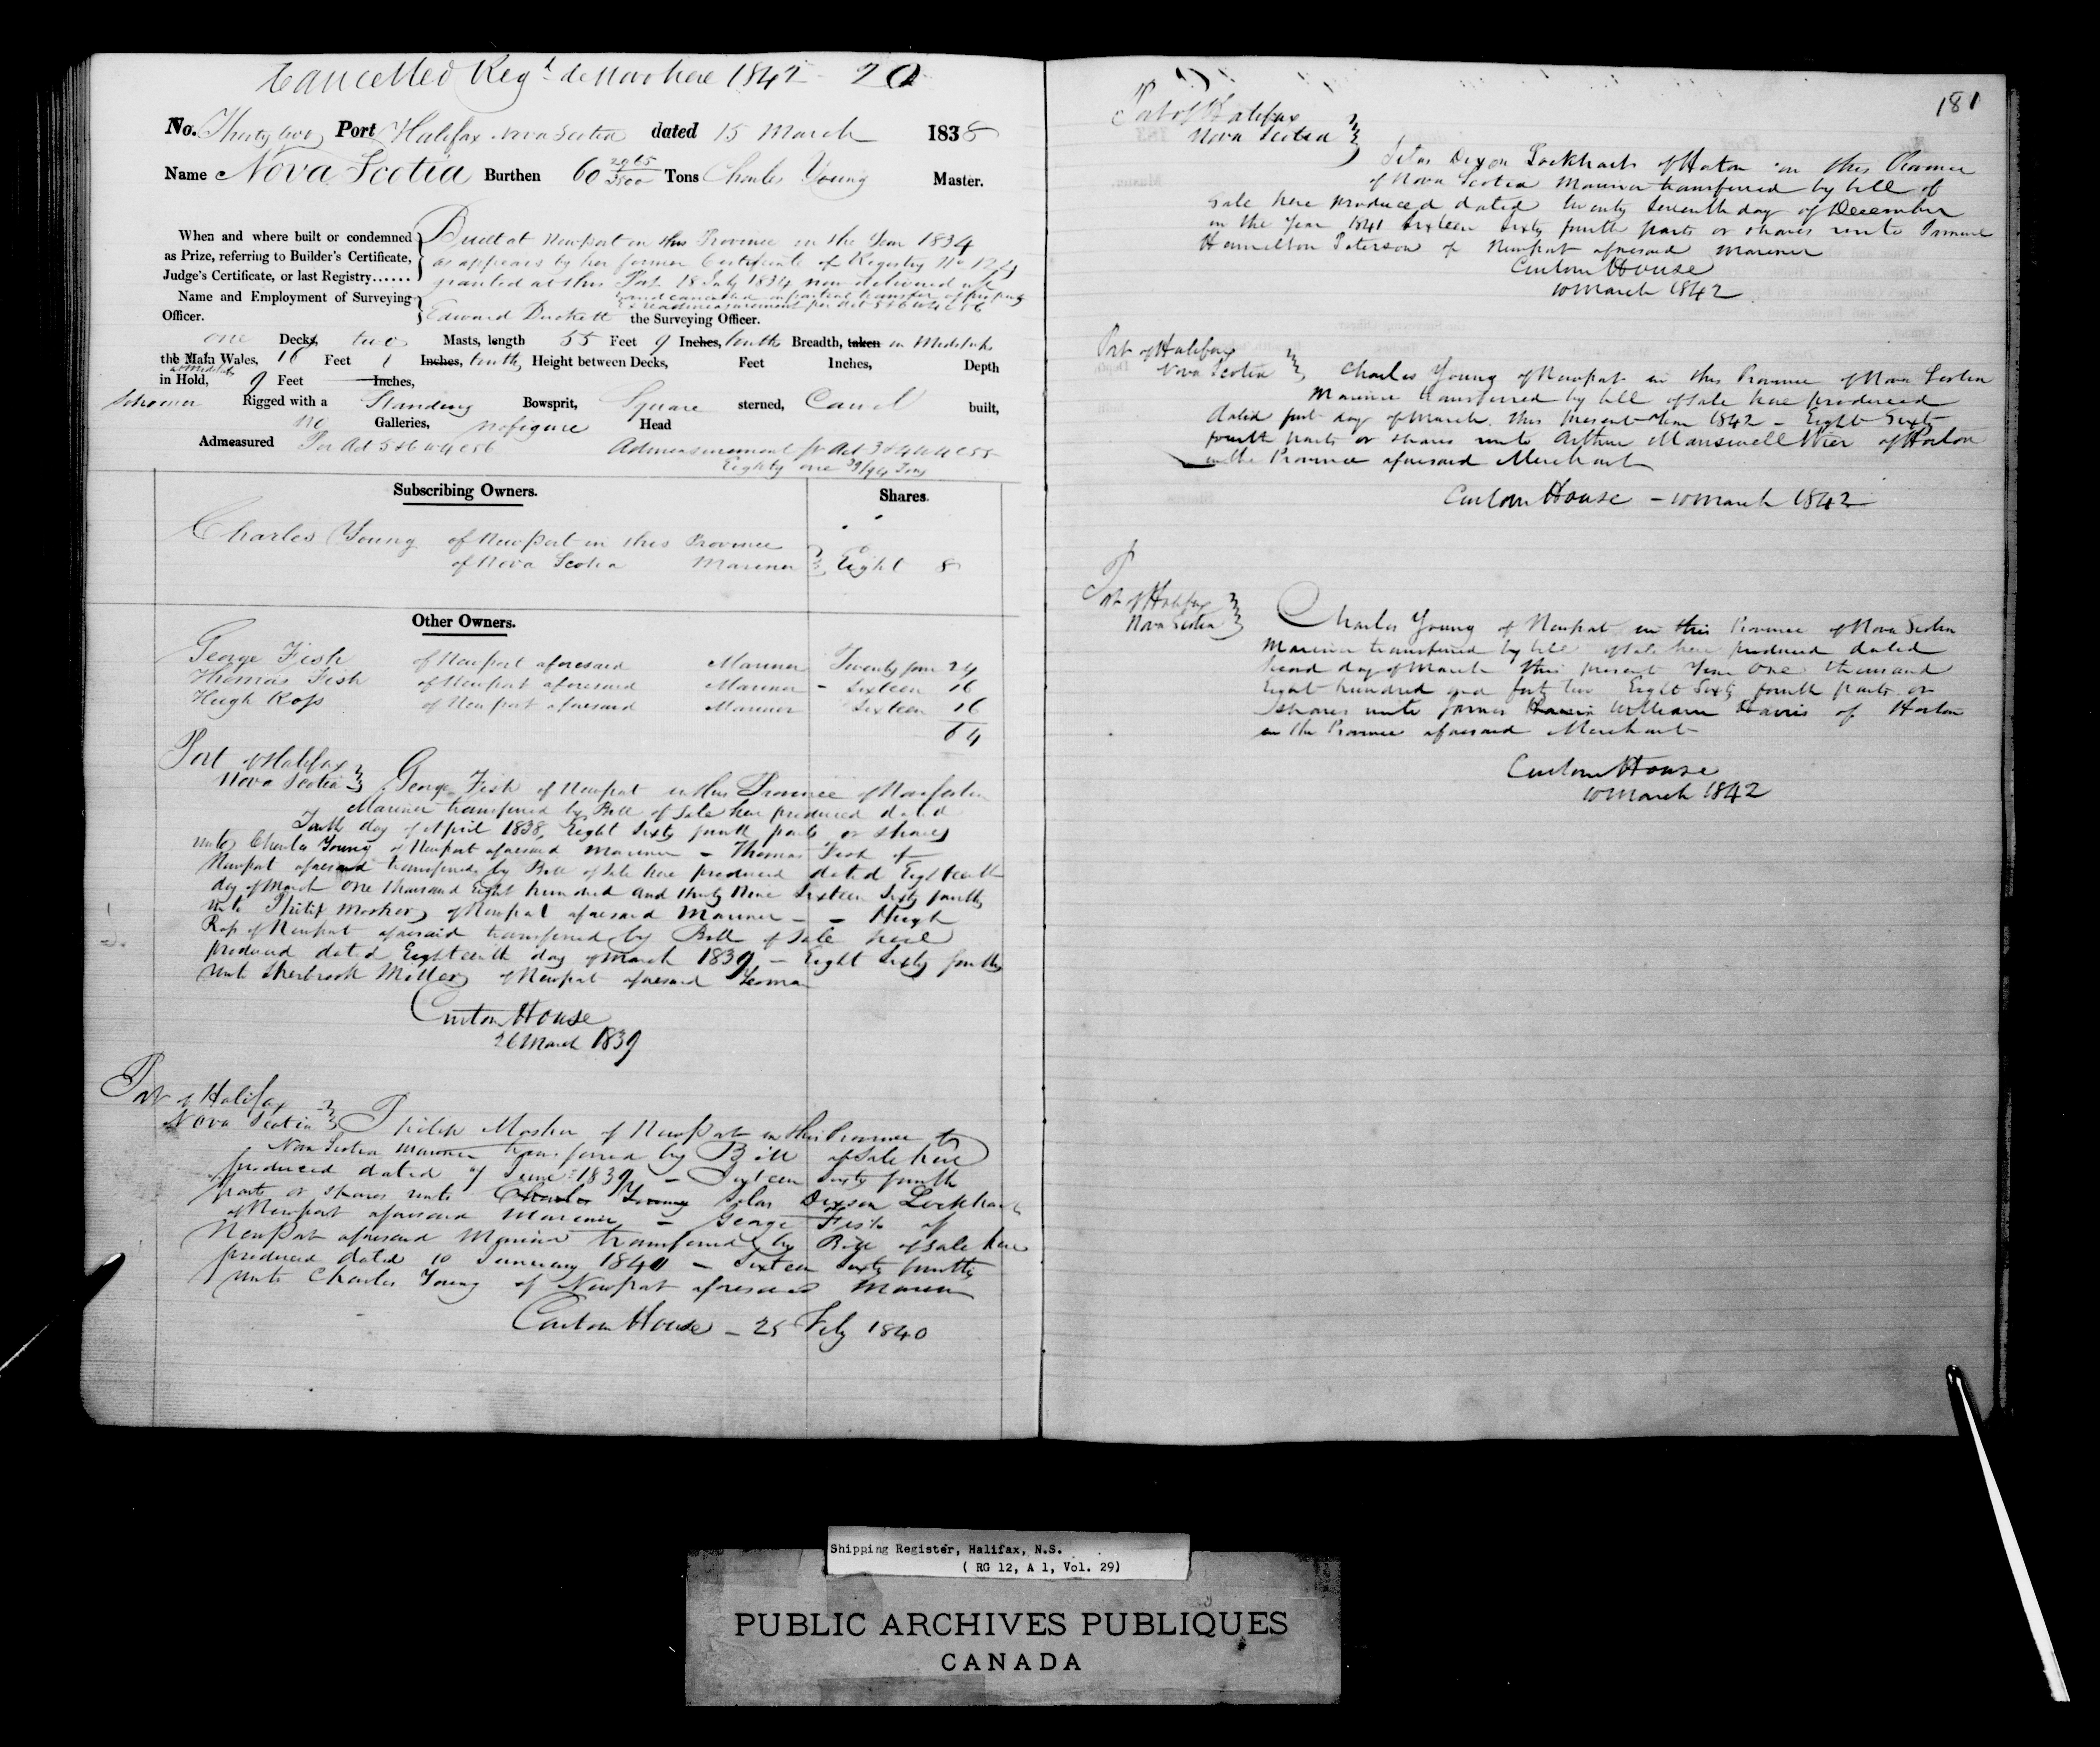 Cancelled Reg^d de Novo here 1842 - 20
No. Thirty two Port Halifax Nova Scotia dated 15 March 1838
Name Nova Scotia Burthen 60 2065/3500 Tons Charles Young Master.
When and where built or condemned as Prize, referring to Builder's Certificate, Judge's Certificate, or last Registry......
Built at Newport in this Province in the Year 1834
as appears by her former Certificate of Registry No
granted at this Port 18 July 1834 now delivered up
and cancelled on partial transfer of property
& readmeasurement per Act 5 & 6 W 4 C 56
Name and Employment of Surveying Officer.
Edward Duckett the Surveying Officer.
one Decks, two Masts, length 55 Feet 9 Inches, tenths Breadth, taken in Midships
the Main Wales, 16 Feet 1 Inches, tenth, Height between Decks, Feet Inches, Depth
in Hold, at Midships 9 Feet Inches,
Schooner Rigged with a Standing Bowsprit, Square sterned, Carvel built,
no Galleries, no figure Head
Admeasured Per Act 5 & 6 W 4 C 56 Admeasurement pr Act 3 & 4 W 4 C 55
Eighty one 39/94 Tons
Subscribing Owners. Shares.
Charles Young of Newport in this Province
of Nova Scotia Mariner } Eight 8
Other Owners.
George Fish of Newport aforesaid Mariner Twenty four 24
Thomas Fish of Newport aforesaid Mariner - Sixteen 16
Hugh Ross of Newport aforesaid Mariner Sixteen 16
64
Port of Halifax
Nova Scotia } George Fish of Newport in this Province of Nova Scotia
Mariner transferred by Bill of Sale here produced dated
Tenth day of April 1838, Eight Sixty fourth parts or shares
unto Charles Young of Newport aforesaid Mariner - Thomas Fish of
Newport aforesaid transferred by Bill of Sale here produced dated Eighteenth
day of March One thousand Eight hundred and thirty Nine Sixteen Sixty fourths
unto Philip Mosher of Newport aforesaid Mariner - - Hugh
Ross of Newport aforesaid transferred by Bill of Sale here
produced dated Eighteenth day of March 1839 - Eight Sixty fourths
unto Sherbrook Miller of Newport aforesaid Yeoman
Custom House
26 March 1839
Port of Halifax
Nova Scotia } Philip Mosher of Newport in this Province of
Nova Scotia Mariner transferred by Bill of Sale here
produced dated 7 June 1839 - Sixteen Sixty fourth
parts or shares unto Charles Young Silas Dixson Lockhart
of Newport aforesaid Mariner - George Fish of
Newport aforesaid Mariner transferred by Bill of Sale here
produced dated 10 January 1840 - Sixteen Sixty fourths
unto Charles Young of Newport aforesaid Mariner
Custom House - 25 Feby 1840
181
Port of Halifax
Nova Scotia }
Silas Dixon Lockhart of Horton in this Province
of Nova Scotia Mariner transferred by bill of
Sale here produced dated twenty seventh day of December
in the Year 1841 Sixteen Sixty fourth parts or shares unto
Hamilton Paterson of Newport aforesaid Mariner
Custom House
10 March 1842
Port of Halifax
Nova Scotia } Charles Young of Newport in this Province of Nova Scotia
Mariner transferred by bill of sale here produced
dated first day of March this present Year 1842 - Eight Sixty
fourth parts or shares unto Arthur Wier of Horton
in the Province aforesaid Merchant
Custom House - 10 March 1842
Port of Halifax
Nova Scotia } Charles Young of Newport in this Province of Nova Scotia
Mariner transferred by bill of sale here produced dated
second day of March this present Year One thousand
Eight hundred and forty two Eight Sixty fourth parts or
shares unto James Harris William Harris of Horton
in the Province aforesaid Merchant
Custom House
10 March 1842
Shipping Register, Halifax, N.S.
( RG 12, A 1, Vol. 29)
PUBLIC ARCHIVES PUBLIQUES
CANADA